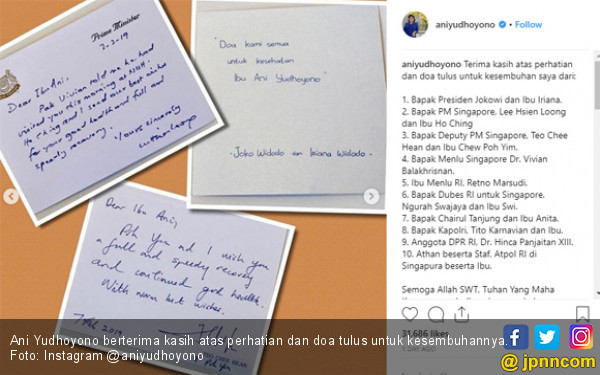 Prime Minister
2-2-19
Dear Ibu Ani,
Pak Vivian told me he had
visited you this morning at NUH.
Ho Ching and I send our best wishes
for your good health and full and
speedy recovery.
Yours sincerely
"Doa kami semua
untuk kesehatan
Ibu Ani Yudhoyono"
- Joko Widodo dan Iriana Widodo -
Dear Ibu Ani,
Poh Yim and I wish you
a full and speedy recovery
and continued good health.
With warm best wishes.
7 Feb 2019
CHEE HEAN
Poh Yim
aniyudhoyono • Following
aniyudhoyono Terima kasih atas perhatian
dan doa tulus untuk kesembuhan saya dari:
1. Bapak Presiden Jokowi dan Ibu Iriana.
2. Bapak PM Singapore, Lee Hsien Loong
dan Ibu Ho Ching
3. Bapak Deputy PM Singapore, Teo Chee
Hean dan Ibu Chew Poh Yim.
4. Bapak Menlu Singapore Dr. Vivian
Balakhrisnan.
5. Ibu Menlu RI, Retno Marsudi.
6. Bapak Dubes RI untuk Singapore,
Ngurah Swajaya dan Ibu Swi.
7. Bapak Chairul Tanjung dan Ibu Anita.
8. Bapak Kapolri, Tito Karnavian dan Ibu.
9. Anggota DPR RI, Dr. Hinca Panjaitan XIII.
10. Athan beserta Staf, Atpol RI di
Singapura beserta Ibu.
Semoga Allah SWT, Tuhan Yang Maha
31,686 likes
Ani Yudhoyono berterima kasih atas perhatian dan doa tulus untuk kesembuhannya.
Foto: Instagram @aniyudhoyono
jpnn.com